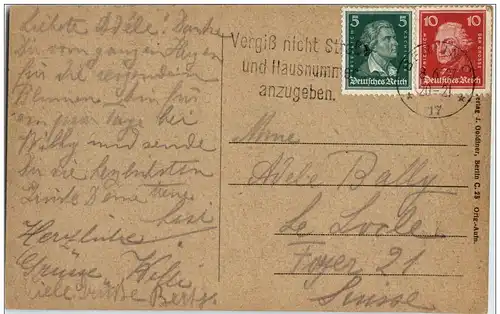 Liebste Adèle! Danke
Dir von ganzem Herzen
für die reizenden
Blumen. Bin für
ein paar Tage bei
Willy und sende
Dir die herzlichsten
Grüsse Deine
Herzliche
Grüsse Willi
viele Grüße Bertz.
Vergiß nicht Straße
und Hausnummer
anzugeben.
5 5
FRIEDRICH
Deutsches Reich
10 10
Deutsches Reich
17
Mme
Adèle Bally
Le Locle
Foyer 21
Suisse
Verlag J. Goldiner, Berlin C. 25 Orig.-Aufn.